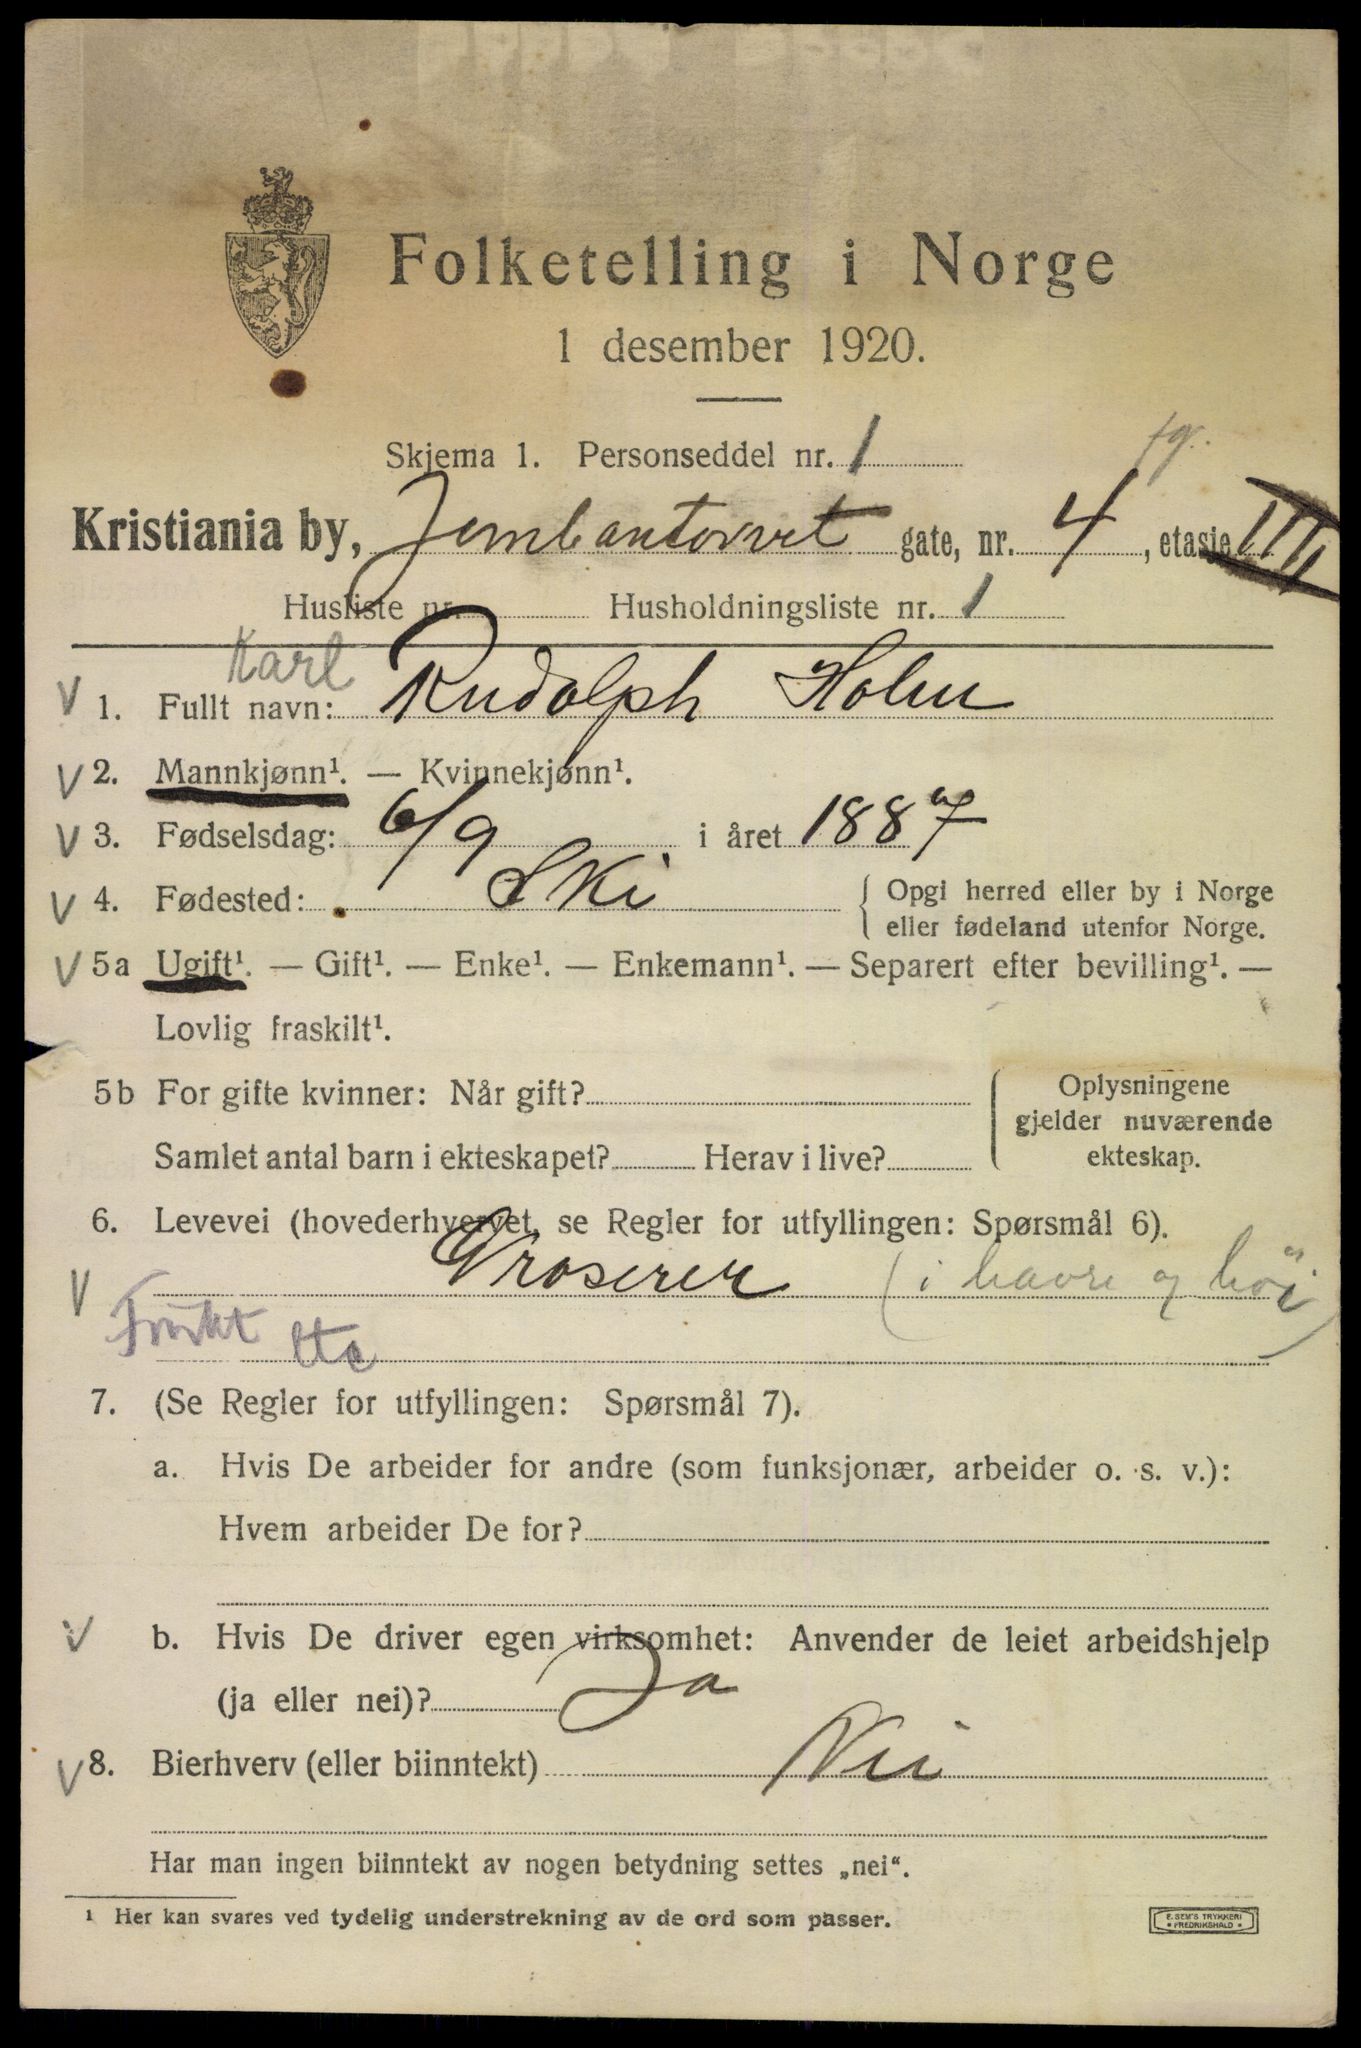 Folketelling i Norge
1 desember 1920.
Skjema 1. Personseddel nr. 1
fg.
Kristiania by, Jernbantorvet gate, nr. 4, etasje III
Husliste nr. Husholdningsliste nr. 1
Karl
1. Fullt navn: Rudolph Holm
2. Mannkjønn¹. — Kvinnekjønn¹.
3. Fødselsdag: 6/9 i året 1887
4. Fødested: Ski { Opgi herred eller by i Norge
eller fødeland utenfor Norge.
5a Ugift¹. — Gift¹. — Enke¹. — Enkemann¹. — Separert efter bevilling¹. —
Lovlig fraskilt¹.
5b For gifte kvinner: Når gift? { Oplysningene
gjelder nuværende
Samlet antal barn i ekteskapet? Herav i live? ekteskap.
6. Levevei (hovederhvervet, se Regler for utfyllingen: Spørsmål 6).
Groserer (i havre og höi)
Frukt etc
7. (Se Regler for utfyllingen: Spørsmål 7).
a. Hvis De arbeider for andre (som funksjonær, arbeider o. s. v.):
Hvem arbeider De for?
b. Hvis De driver egen virksomhet: Anvender de leiet arbeidshjelp
(ja eller nei)? Ja
8. Bierhverv (eller biinntekt) Nei
Har man ingen biinntekt av nogen betydning settes „nei“.
¹ Her kan svares ved tydelig understrekning av de ord som passer.
E. SEM'S TRYKKERI
• FREDRIKSHALD •